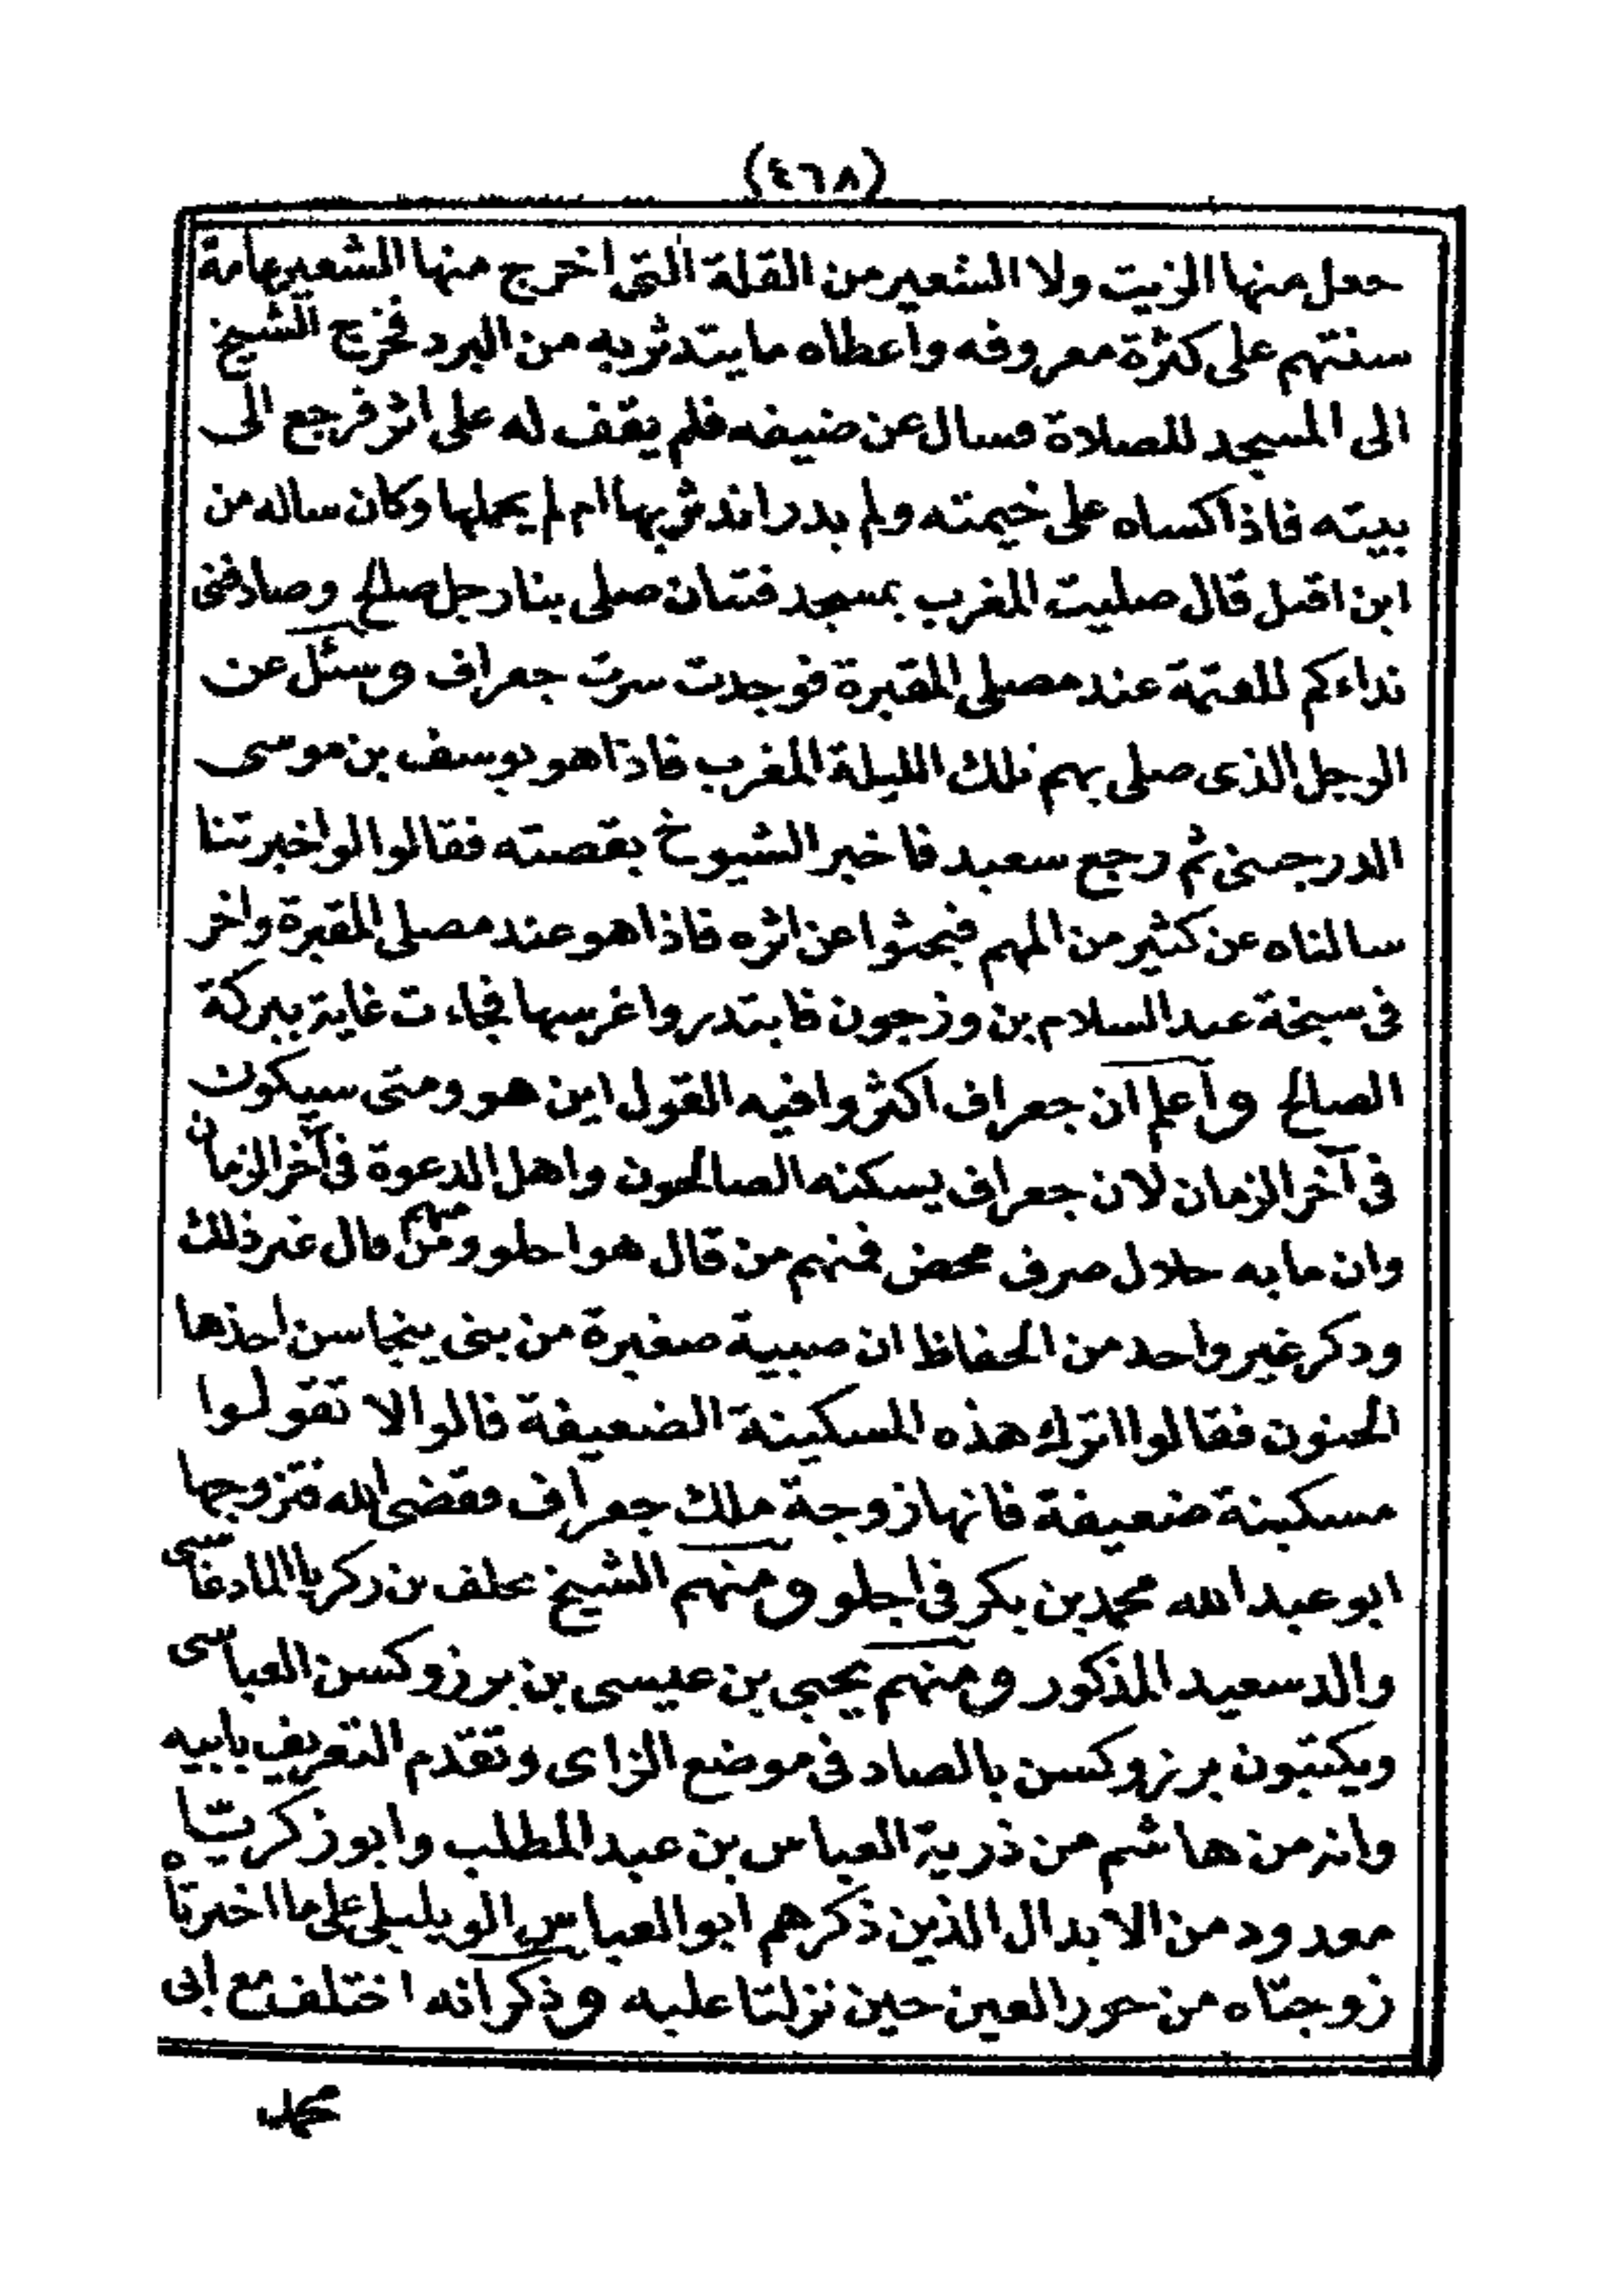 (٤٦٨)
جعل منها الزيت ولا الشعير من القلة التى اخرج منها الشعير عامة
سنتهم على كثرة معروفه واعطاه ما يتدثر به من البرد فخرج الشيخ
الى المسجد للصلاة فسال عن ضيفه فلم يقف له على اثر فرجع الى
بيته فاذا كساه على خيمته ولم يدر اندثر بها ام لم يحملها وكان ساله من
اين اقبل قال صليت المغرب بمسجد فتنان صلى بنا رجل صالح وصادفنى
نداءكم للعتمة عند مصلى المقبرة فوجدت سرت جعراف وسئل عن
الرجل الذى صلى بهم تلك الليلة المغرب فاذا هو يوسف بن موسى
الدرجينى ثم رجع سعيد فاخبر الشيوخ بقصته فقالوا لو اخبرتنا
سالناه عن كثير من المهم فبحثوا عن اثره فاذا هو عند مصلى المقبرة واخر
فى سبخة عبد السلام بن وزجون فابتدروا غرسها فجاءت غاية ببركة
الصالح واعلم ان جعراف اكثروا فيه القول اين هو ومتى سيكون
فى آخر الزمان لان جعراف يسكنه الصالحون واهل الدعوة فى آخر الزمان
وان ما به حلال صرف محض فمنهم من قال هو اجلو ومنهم من قال غير ذلك
وذكر غير واحد من الحفاظ ان صبية صغيرة من بنى ينجاسن اخذها
الجنون فقالوا اترك هذه المسكينة الضعيفة قالوا الا تقولوا
مسكينة ضعيفة فانها زوجة ملك جعراف فقضى الله فتزوجها
ابو عبد الله محمد بن بكر فى اجلو ومنهم الشيخ يخلف بن زكريا المادغاسى
والد سعيد المذكور ومنهم يحيى بن عيسى بن برزوكسن العباسى
ويكتبون برزوكسن بالصاد فى موضع الزاى وتقدم التعريف بابيه
وانه من هاشم من ذرية العباس بن عبد المطلب وابو زكريا
معدود من الابدال الذين ذكرهم ابو العباس الويليلى على ما اخبرتاه
زوجتاه من حور العين حين نزلتا عليه وذكر انه اختلف مع ابى
محمد